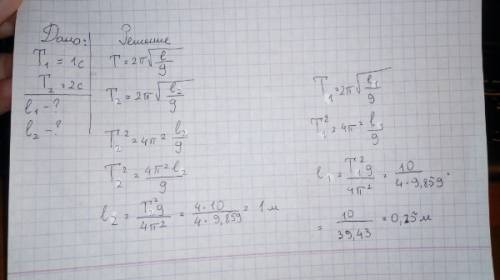 Дано:
T₁ = 1c
T₂ = 2c
l₁ - ?
l₂ - ?
Решение
T = 2π√(l/g)
T₂ = 2π√(l₂/g)
T₂² = 4π² l₂/g
T₂² = 4π² l₂/g
l₂ = T₂²g/4π² = 4·10/4·9,859 = 1 м
T₁ = 2π√(l₁/g)
T₁² = 4π² l₁/g
l₁ = T₁²g/4π² = 10/4·9,859 =
= 10/39,43 = 0,25 м